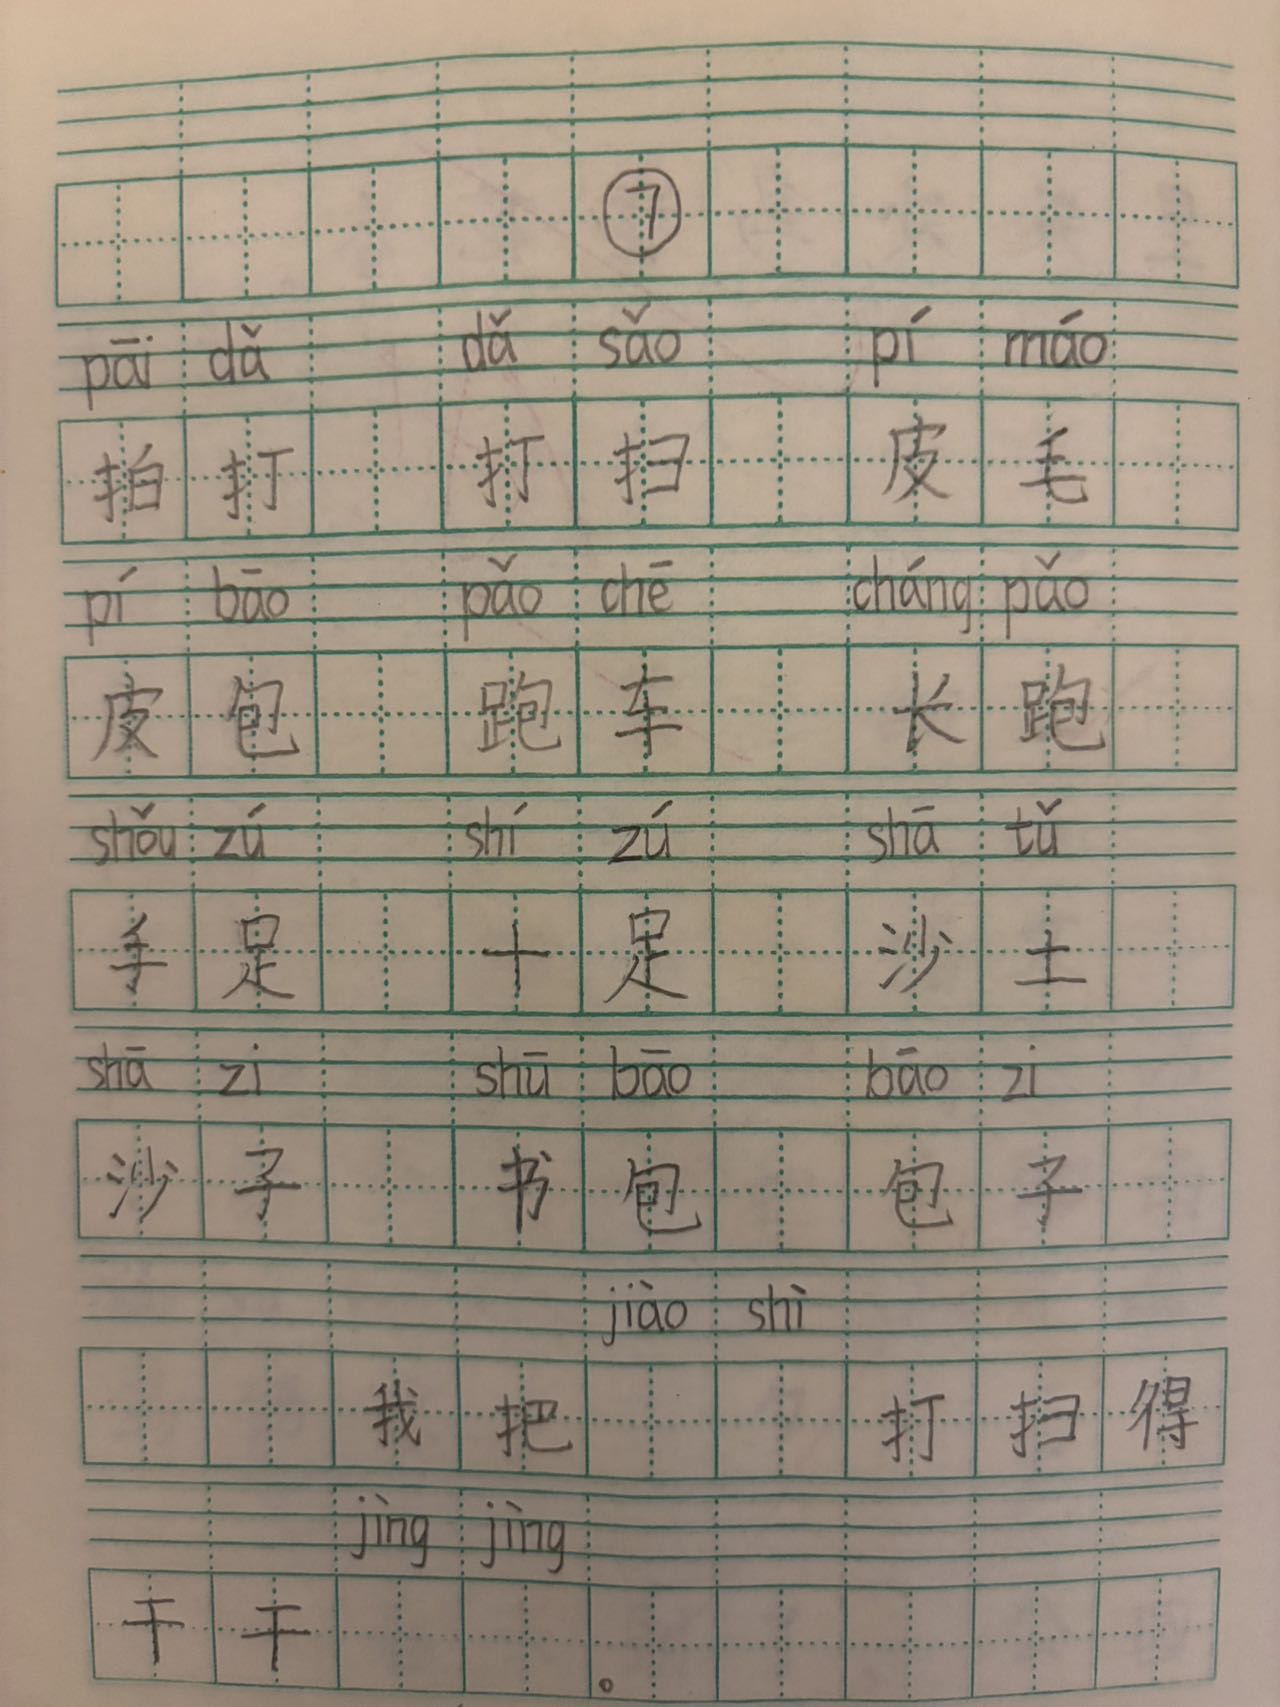 ⑦
pāi dǎ dǎ sǎo pí máo
拍打 打扫 皮毛
pí bāo pǎo chē cháng pǎo
皮包 跑车 长跑
shǒu zú shí zú shā tǔ
手足 十足 沙土
shā zi shū bāo bāo zi
沙子 书包 包子
jiào shì
我把 打扫得
jìng jìng
干干 。